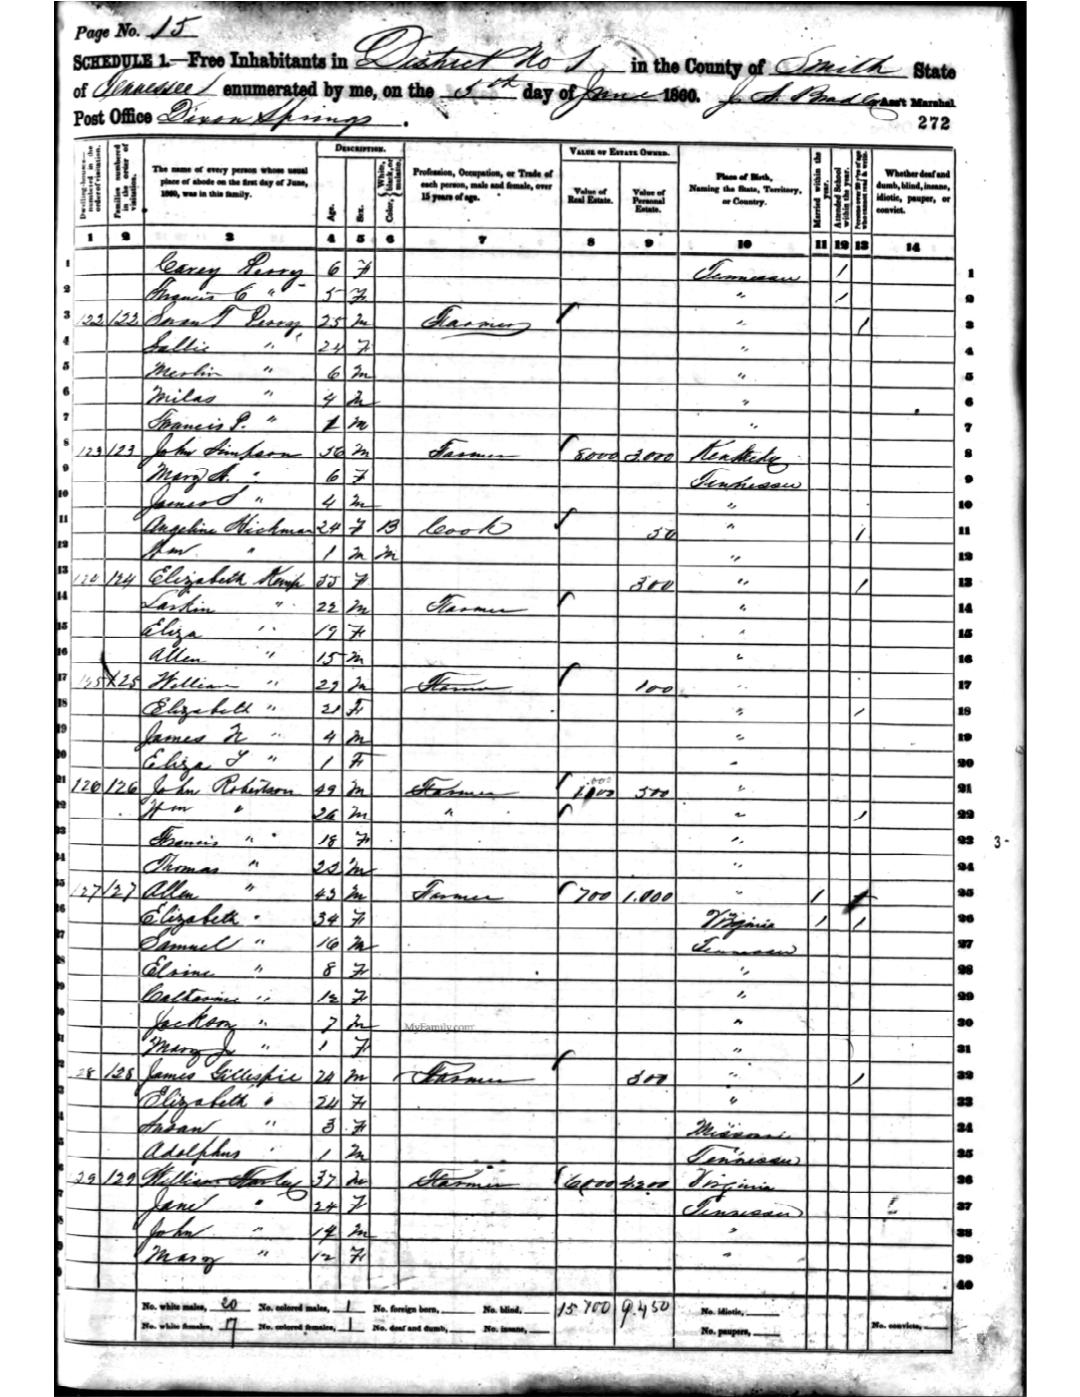 Page No. 15
SCHEDULE 1.—Free Inhabitants in District No 1 in the County of Smith State
of Tennessee enumerated by me, on the 5th day of June 1860. J. A. Bradley Ass't Marshal
Post Office Dixon Springs. 272
DESCRIPTION. VALUE OF ESTATE OWNED.
Dwelling-houses—numbered in the order of visitation. Families numbered in the order of visitation. The name of every person whose usual place of abode on the first day of June, 1860, was in this family. Age. Sex. Color, White, black, or mulatto. Profession, Occupation, or Trade of each person, male and female, over 15 years of age. Value of Real Estate. Value of Personal Estate. Place of Birth, Naming the State, Territory, or Country. Married within the year. Attended School within the year. Whether deaf and dumb, blind, insane, idiotic, pauper, or convict.
1 2 3 4 5 6 7 8 9 10 11 12 13 14
1 Carey Perry 6 F Tennessee 1 1
2 Francis C " 5 F " 1 2
3 122 122 Perry 25 m Farmer " 1 3
4 Sallie " 24 F " 4
5 Merlin " 6 m " 5
6 Milas " 4 m " 6
7 Francis P. " 1 m " 7
8 123 123 John Simpson 36 m Farmer 8000 3000 Kentucky 8
9 Mary A. " 6 F Tennessee 9
10 James S " 4 m " 10
11 Angeline Hickman 24 F B Cook 50 " 1 11
12 Wm " 1 m m " 12
13 124 124 Elizabeth Kemp 55 F 300 " 1 13
14 Larkin " 22 m Farmer " 14
15 Eliza " 19 F " 15
16 Allen " 15 m " 16
17 125 125 William " 29 m Farmer 100 " 17
18 Elizabeth " 21 F " 1 18
19 James N " 4 m " 19
20 Eliza T " 1 F " 20
21 126 126 John Robertson 49 m Farmer 1000 500 " 21
22 Wm " 26 m " " 1 22
23 Francis " 18 F " 23
24 Thomas " 22 m " 24
25 127 127 Allen " 43 m Farmer 700 1.000 " 1 25
26 Elizabeth " 34 F Virginia 1 1 26
27 Samuel " 16 m Tennessee 27
28 " 8 F " 28
29 Catharine " 12 F " 29
30 Jackson " 7 m " 30
31 Mary J. " 1 F " 31
28 128 James Gillespie 24 m Farmer 300 " 1 32
Elizabeth " 24 F " 33
Susan " 3 F Missouri 34
Adolphus " 1 m Tennessee 35
29 129 William 37 m Farmer 6000 4200 Virginia 36
Jane " 24 F Tennessee 37
John " 14 m " 38
Mary " 12 F " 39
40
3-
MyFamily.com
No. white males, 20 No. colored males, 1 No. foreign born, No. blind, 15 700 9.450 No. idiotic,
No. white females, 17 No. colored females, 1 No. deaf and dumb, No. insane, No. paupers, No. convicts,